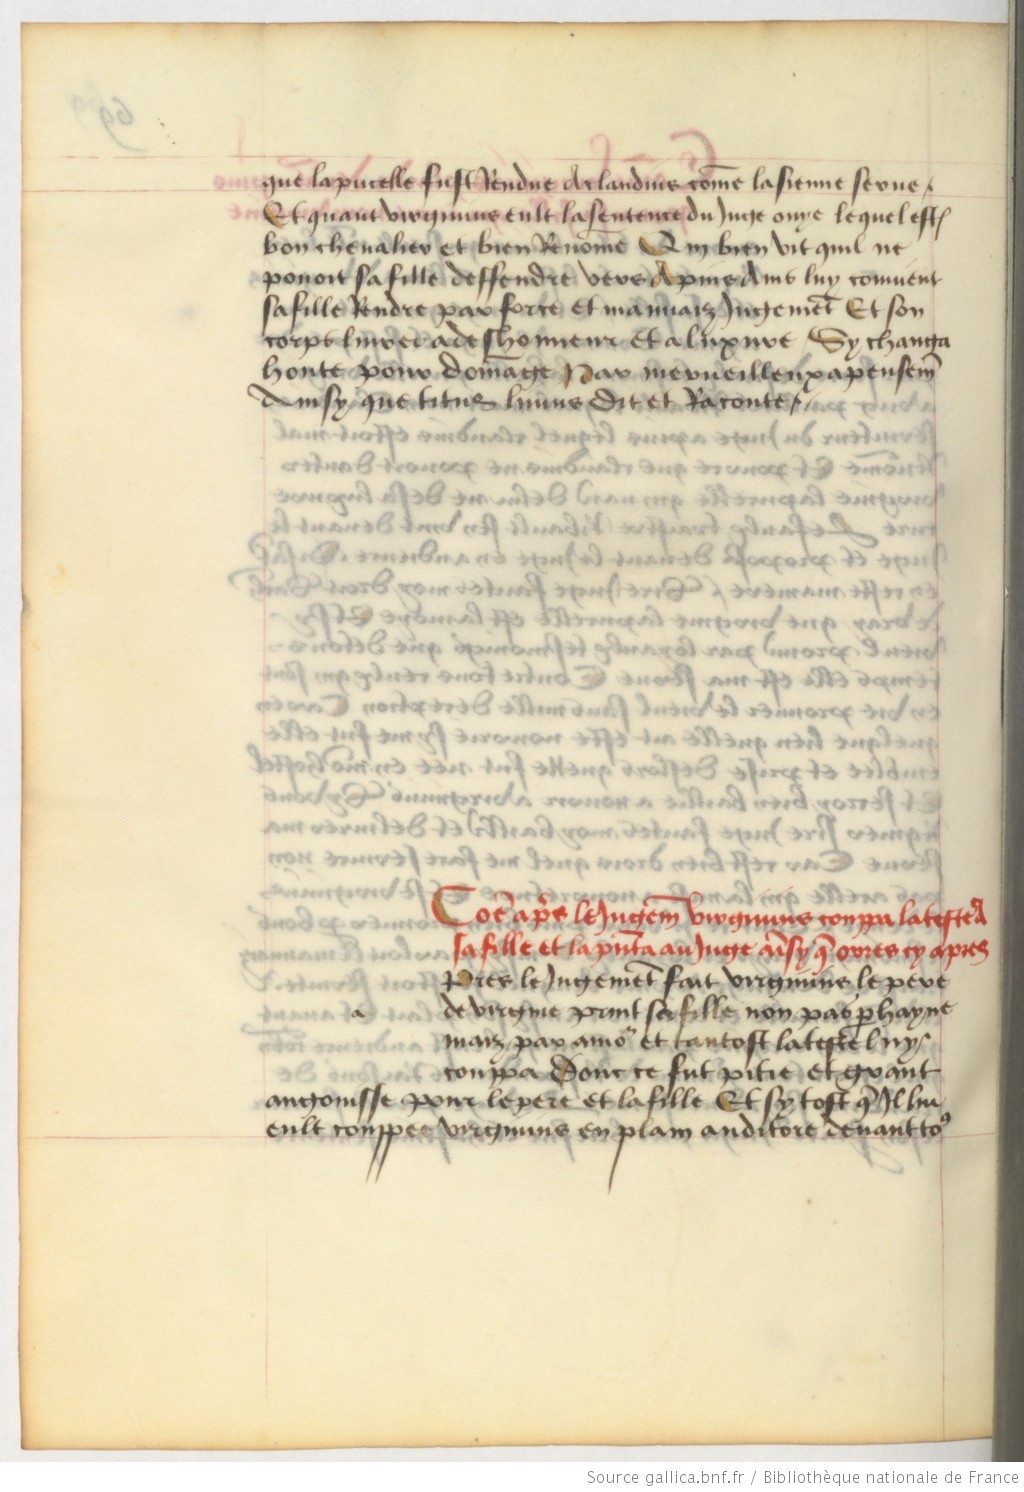 que la pucelle fust Rendue A claudius cõme la sienne serue /
Et quant virginius eult la sentence du Juge ouye lequel est
bon cheualier et bien Renõme Qui bien vit quil ne
pouoit sa fille deffendre vers Apius Ains luy conuient
sa fille Rendre par force et mauuaiz Jugemẽt Et son
corps liurer a deshonneur et a luxure Sy changa
honte pour dõmage Par merueilleux apensem̃
Ainsy que titus liuius dit et Raconte /
Cõe ap̃s le Jugem̃ Virginius couppa la teste A
sa fille et la pñta au Juge aĩsy q̃ orres cy apres
Pres le Jugemẽt fait virginius le pere
a
de virgine print sa fille non pas p hayne
maiz par amo et tantost la teste luy /
couppa Donc ce fut pitie et grant
angouisse pour le pere et la fille Et sy tost q̃ Il lui
eult couppee virginius en plain auditore deuant to9
Source gallica.bnf.fr / Bibliothèque nationale de France